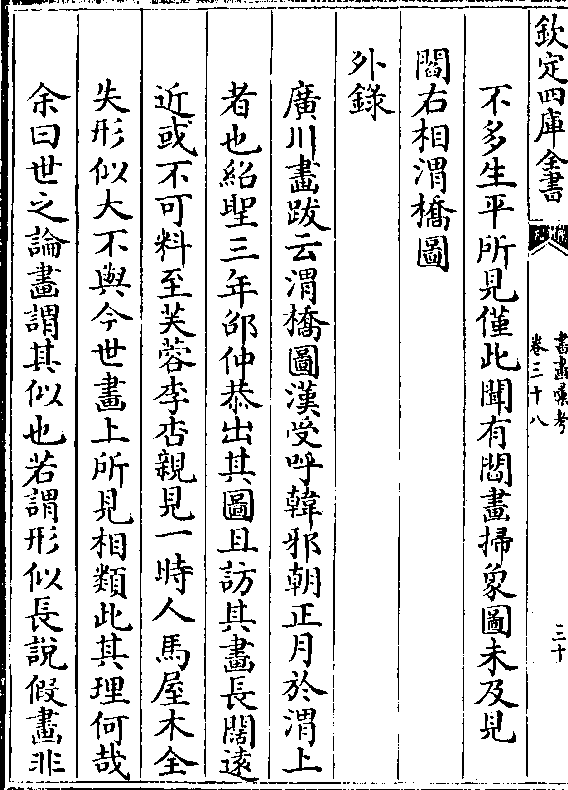 欽定四庫全書
書畫彙考
卷三十八
三十
不多生平所見僅此聞有閻畫掃象圖未及見
閻右相渭橋圖
外錄
廣川畫跋云渭橋圖漢受呼韓邪朝正月於渭上
者也紹聖三年邵仲恭出其圖且訪其畫長闊遠
近或不可料至芙蓉李杏親見一時人馬屋木全
失形似大不與今世畫上所見相類此其理何哉
余曰世之論畫謂其似也若謂形似長說假畫非